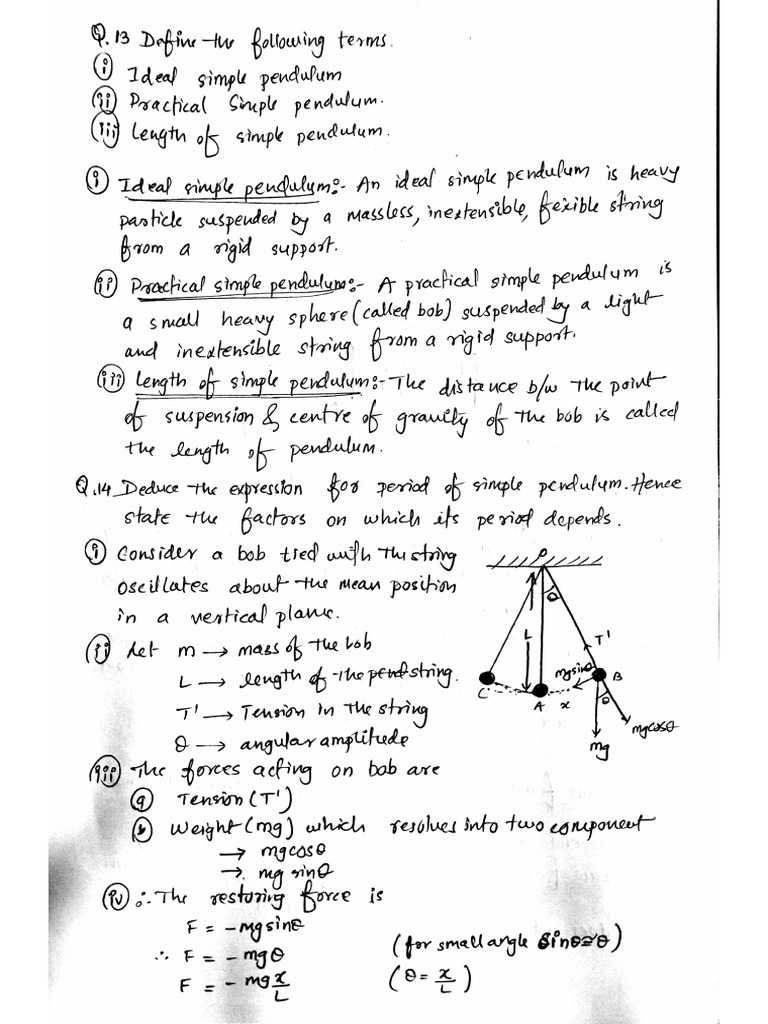 Q.13 Define the following terms.
(i) Ideal simple pendulum
(ii) Practical Simple pendulum.
(iii) Length of simple pendulum.
(i) Ideal simple pendulum:- An ideal simple pendulum is heavy
particle suspended by a massless, inextensible, fexible string
from a rigid support.
(ii) Practical simple pendulum:- A practical simple pendulum is
a small heavy sphere (called bob) suspended by a light
and inextensible string from a rigid support.
(iii) Length of simple pendulum:- The distance b/w the point
of suspension & centre of gravity of the bob is called
the length of pendulum.
Q.14 Deduce the expression for period of simple pendulum. Hence
state the factors on which its period depends.
(i) Consider a bob tied with the string
oscillates about the mean position
in a vertical plane.
(ii) Let m → mass of the bob
L → length of the string.
T' → Tension in the string
θ → angular amplitude
P
θ
L
T'
mg sinθ
B
C
A
x
θ
mg cosθ
mg
(iii) The forces acting on bob are
(a) Tension (T')
(b) Weight (mg) which resolves into two component
→ mg cosθ
→ mg sinθ
(iv) ∴ The restoring force is
F = - mg sinθ
∴ F = - mgθ (for small angle Sinθ≅θ)
F = - mg x/L (θ = x/L)